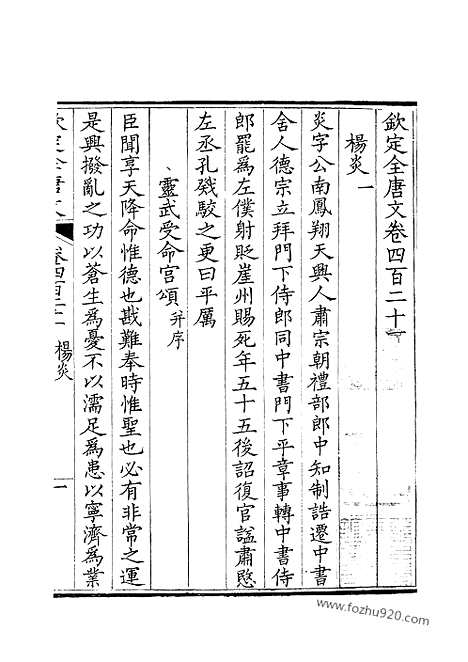 欽定全唐文卷四百二十一
楊炎一
炎字公南鳳翔天興人肅宗朝禮部郎中知制誥遷中書
舍人德宗立拜門下侍郎同中書門下平章事轉中書侍
郎罷為左僕射貶崖州賜死年五十五後詔復官諡肅愍
左丞孔戣駮之更曰平厲
靈武受命宮頌并序
臣聞享天降命惟德也戡難奉時惟聖也必有非常之運
是興撥亂之功以蒼生為憂不以濡足為患以寧濟為業
欽定全唐文 卷四百二十一 楊炎 一
www.fozhu920.com